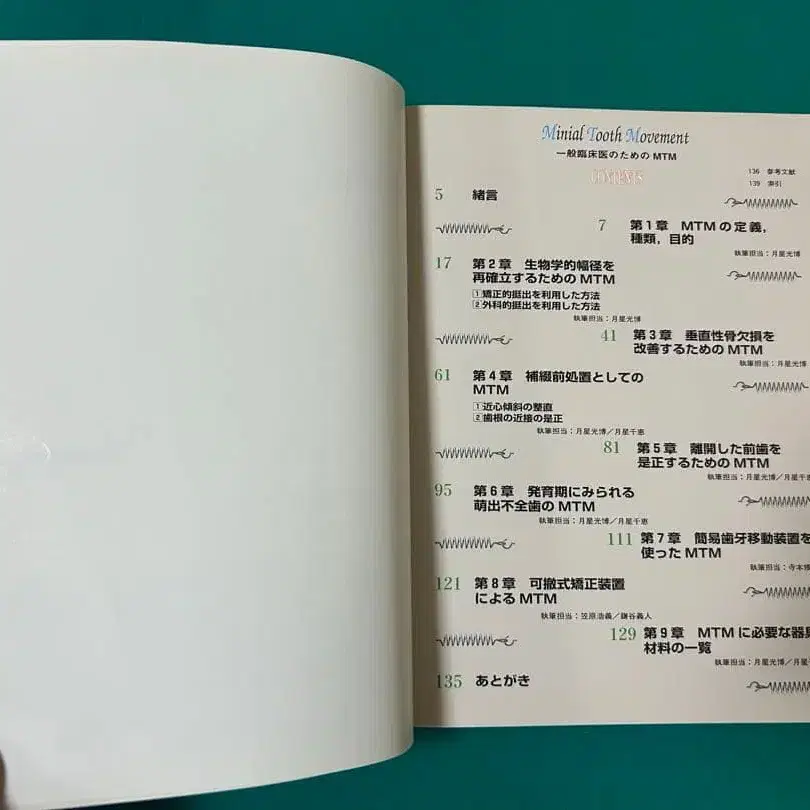 Minial Tooth Movement
一般臨床医のためのMTM
CONTENTS
136 参考文献
139 索引
5 緒言
7 第1章 MTMの定義,
種類,目的
執筆担当:月星光博
17 第2章 生物学的幅径を
再確立するためのMTM
1矯正的挺出を利用した方法
2外科的挺出を利用した方法
執筆担当:月星光博
41 第3章 垂直性骨欠損を
改善するためのMTM
執筆担当:月星光博
61 第4章 補綴前処置としての
MTM
1近心傾斜の整直
2歯根の近接の是正
執筆担当:月星光博/月星千恵
81 第5章 離開した前歯を
是正するためのMTM
執筆担当:月星光博/月星千恵
95 第6章 発育期にみられる
萌出不全歯のMTM
執筆担当:月星光博/月星千恵
111 第7章 簡易歯牙移動装置を
使ったMTM
執筆担当:寺本
121 第8章 可撤式矯正装置
によるMTM
執筆担当:笠原浩義/鎌谷義人
129 第9章 MTMに必要な器具
材料の一覧
執筆担当:月星光博/月星
135 あとがき